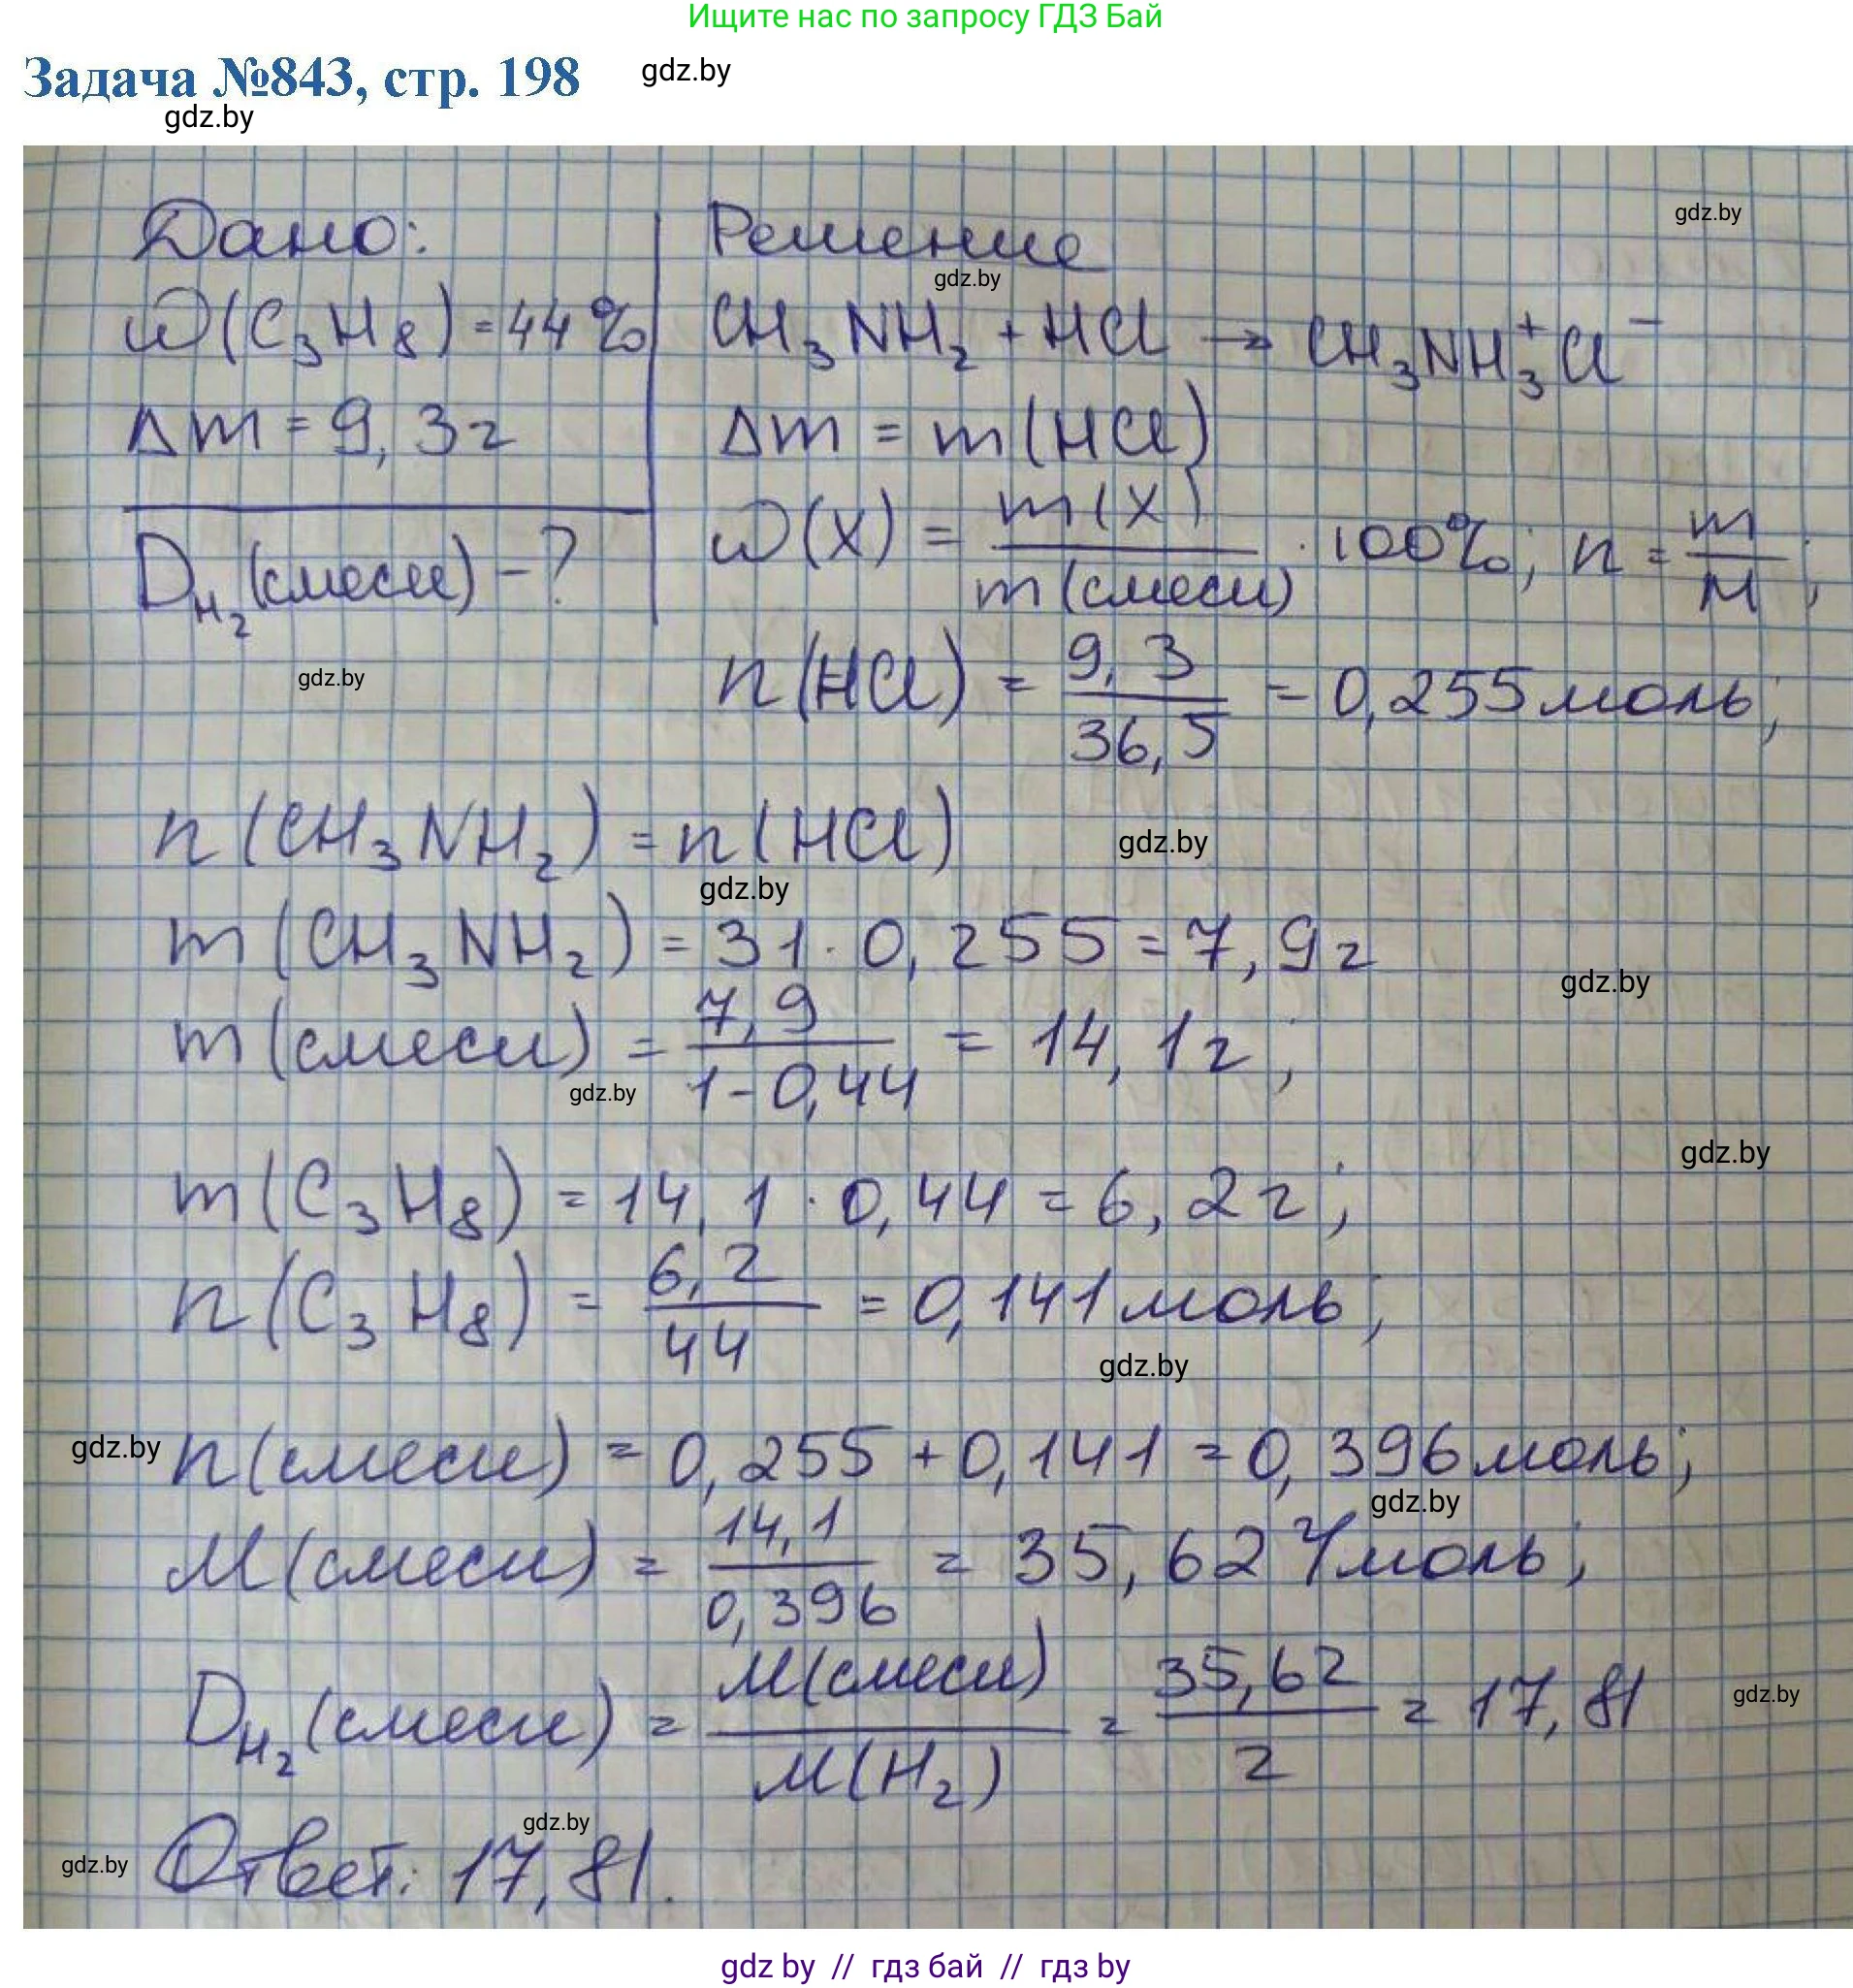 Ищите нас по запросу ГДЗ Бай
Задача №843, стр. 198
gdz.by
gdz.by
Дано:
ω(C₃H₈) = 44%
Δm = 9,3г
D_H₂(смеси) - ?
Решение
gdz.by
gdz.by
CH₃NH₂ + HCl → CH₃NH₃⁺Cl⁻
Δm = m(HCl)
ω(X) = m(X) / m(смеси) · 100%; n = m / M;
gdz.by
n(HCl) = 9,3 / 36,5 = 0,255 моль;
n(CH₃NH₂) = n(HCl)
gdz.by
gdz.by
m(CH₃NH₂) = 31 · 0,255 = 7,9г
gdz.by
m(смеси) = 7,9 / 1-0,44 = 14,1г;
gdz.by
gdz.by
m(C₃H₈) = 14,1 · 0,44 = 6,2г;
n(C₃H₈) = 6,2 / 44 = 0,141 моль;
gdz.by
gdz.by
n(смеси) = 0,255 + 0,141 = 0,396 моль;
gdz.by
M(смеси) = 14,1 / 0,396 = 35,62 г/моль;
D_H₂(смеси) = M(смеси) / M(H₂) = 35,62 / 2 = 17,81
gdz.by
gdz.by
gdz.by
Ответ: 17,81.
gdz by // гдз бай // гдз by